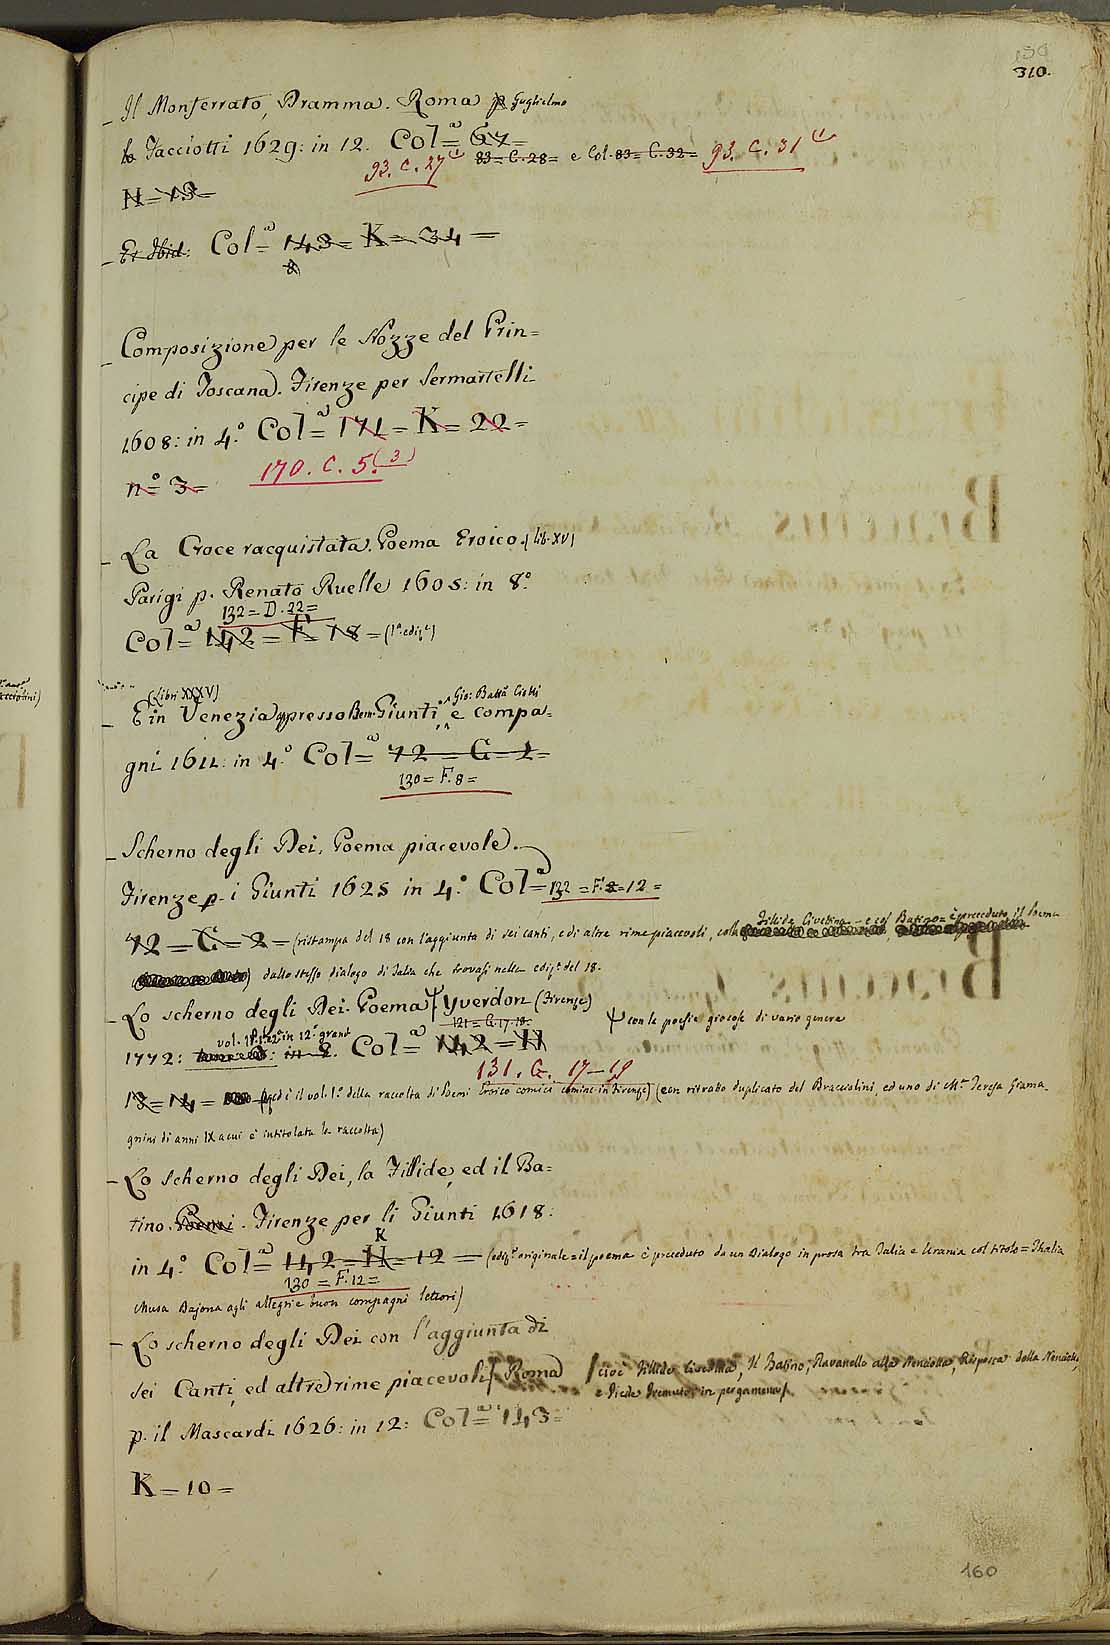 310.
– Il Monferrato, Dramma. Roma p Guglielmo
Facciotti 1629: in 12. Col.ª= 67=
93. C. 27 83=C.28= e Col. 83=C.32= 93. C. 31
N=13=
– Et Ibid: Col.ª= 143= K=34=
8
– Composizione per le Nozze del Prin=
cipe di Toscana. Firenze per Sermartelli
1608: in 4.º Col.ª= 171=K=22=
n.º 3= 170. C. 5.(3)
– La Croce racquistata. Poema Eroico. (lib. XV)
Parigi p. Renato Ruelle 1605: in 8.º
132=D.22=
Col.ª= 142=F=18= (1ª ediz.e)
(Libri XXXV) Gio: Batta Ciotti
– E in Venezia appresso Bern. Giunti, e compa=
gni 1611: in 4.º Col.ª= 72=G=1=
130=F.8=
– Scherno degli Dei, Poema piacevole.
Firenze p. i Giunti 1625 in 4.º Col.ª= 132=F.=12=
Fillide Civettina – e col Batino = è preceduto il Poema
72=G=2= (ristampa del 18 con l'aggiunta di sei canti, e di altre rime piacevoli, colla
dallo stesso dialogo di Talia che trovasi nella ediz.e del 18.
– Lo scherno degli Dei. Poema Yverdon (Firenze)
con le poesie giocose di vario genere
121=G.17.18.
vol. 1º e 2º in 12º grand
1772: in 8. Col.ª= 142=H
131. G. 17–18
13=14= (ed è il vol. 1º della raccolta di Poemi Eroico comici in Firenze) (con ritratto duplicato del Bracciolini, ed uno di M.a Teresa Grama=
gnini di anni IX a cui è intitolata la raccolta)
– Lo scherno degli Dei, la Fillide, ed il Ba=
tino. Poemi. Firenze per li Giunti 1618:
K
in 4.º Col.ª= 142=H=12= (ediz.e originale = il poema è preceduto da un Dialogo in prosa tra Talia e Urania col titolo = Thalia
130=F.12=
Musa Bajona agli allegri e buon compagni lettori)
– Lo scherno degli Dei con l'aggiunta di
sei Canti, ed altre rime piacevoli. Roma / cioè Fillide Civettina, Il Batino; Ravanello alla Nenciotta, Risposta della Nenciotta
in pergamena/
p. il Mascardi 1626: in 12: Col.ª= 143=
K=10=
160